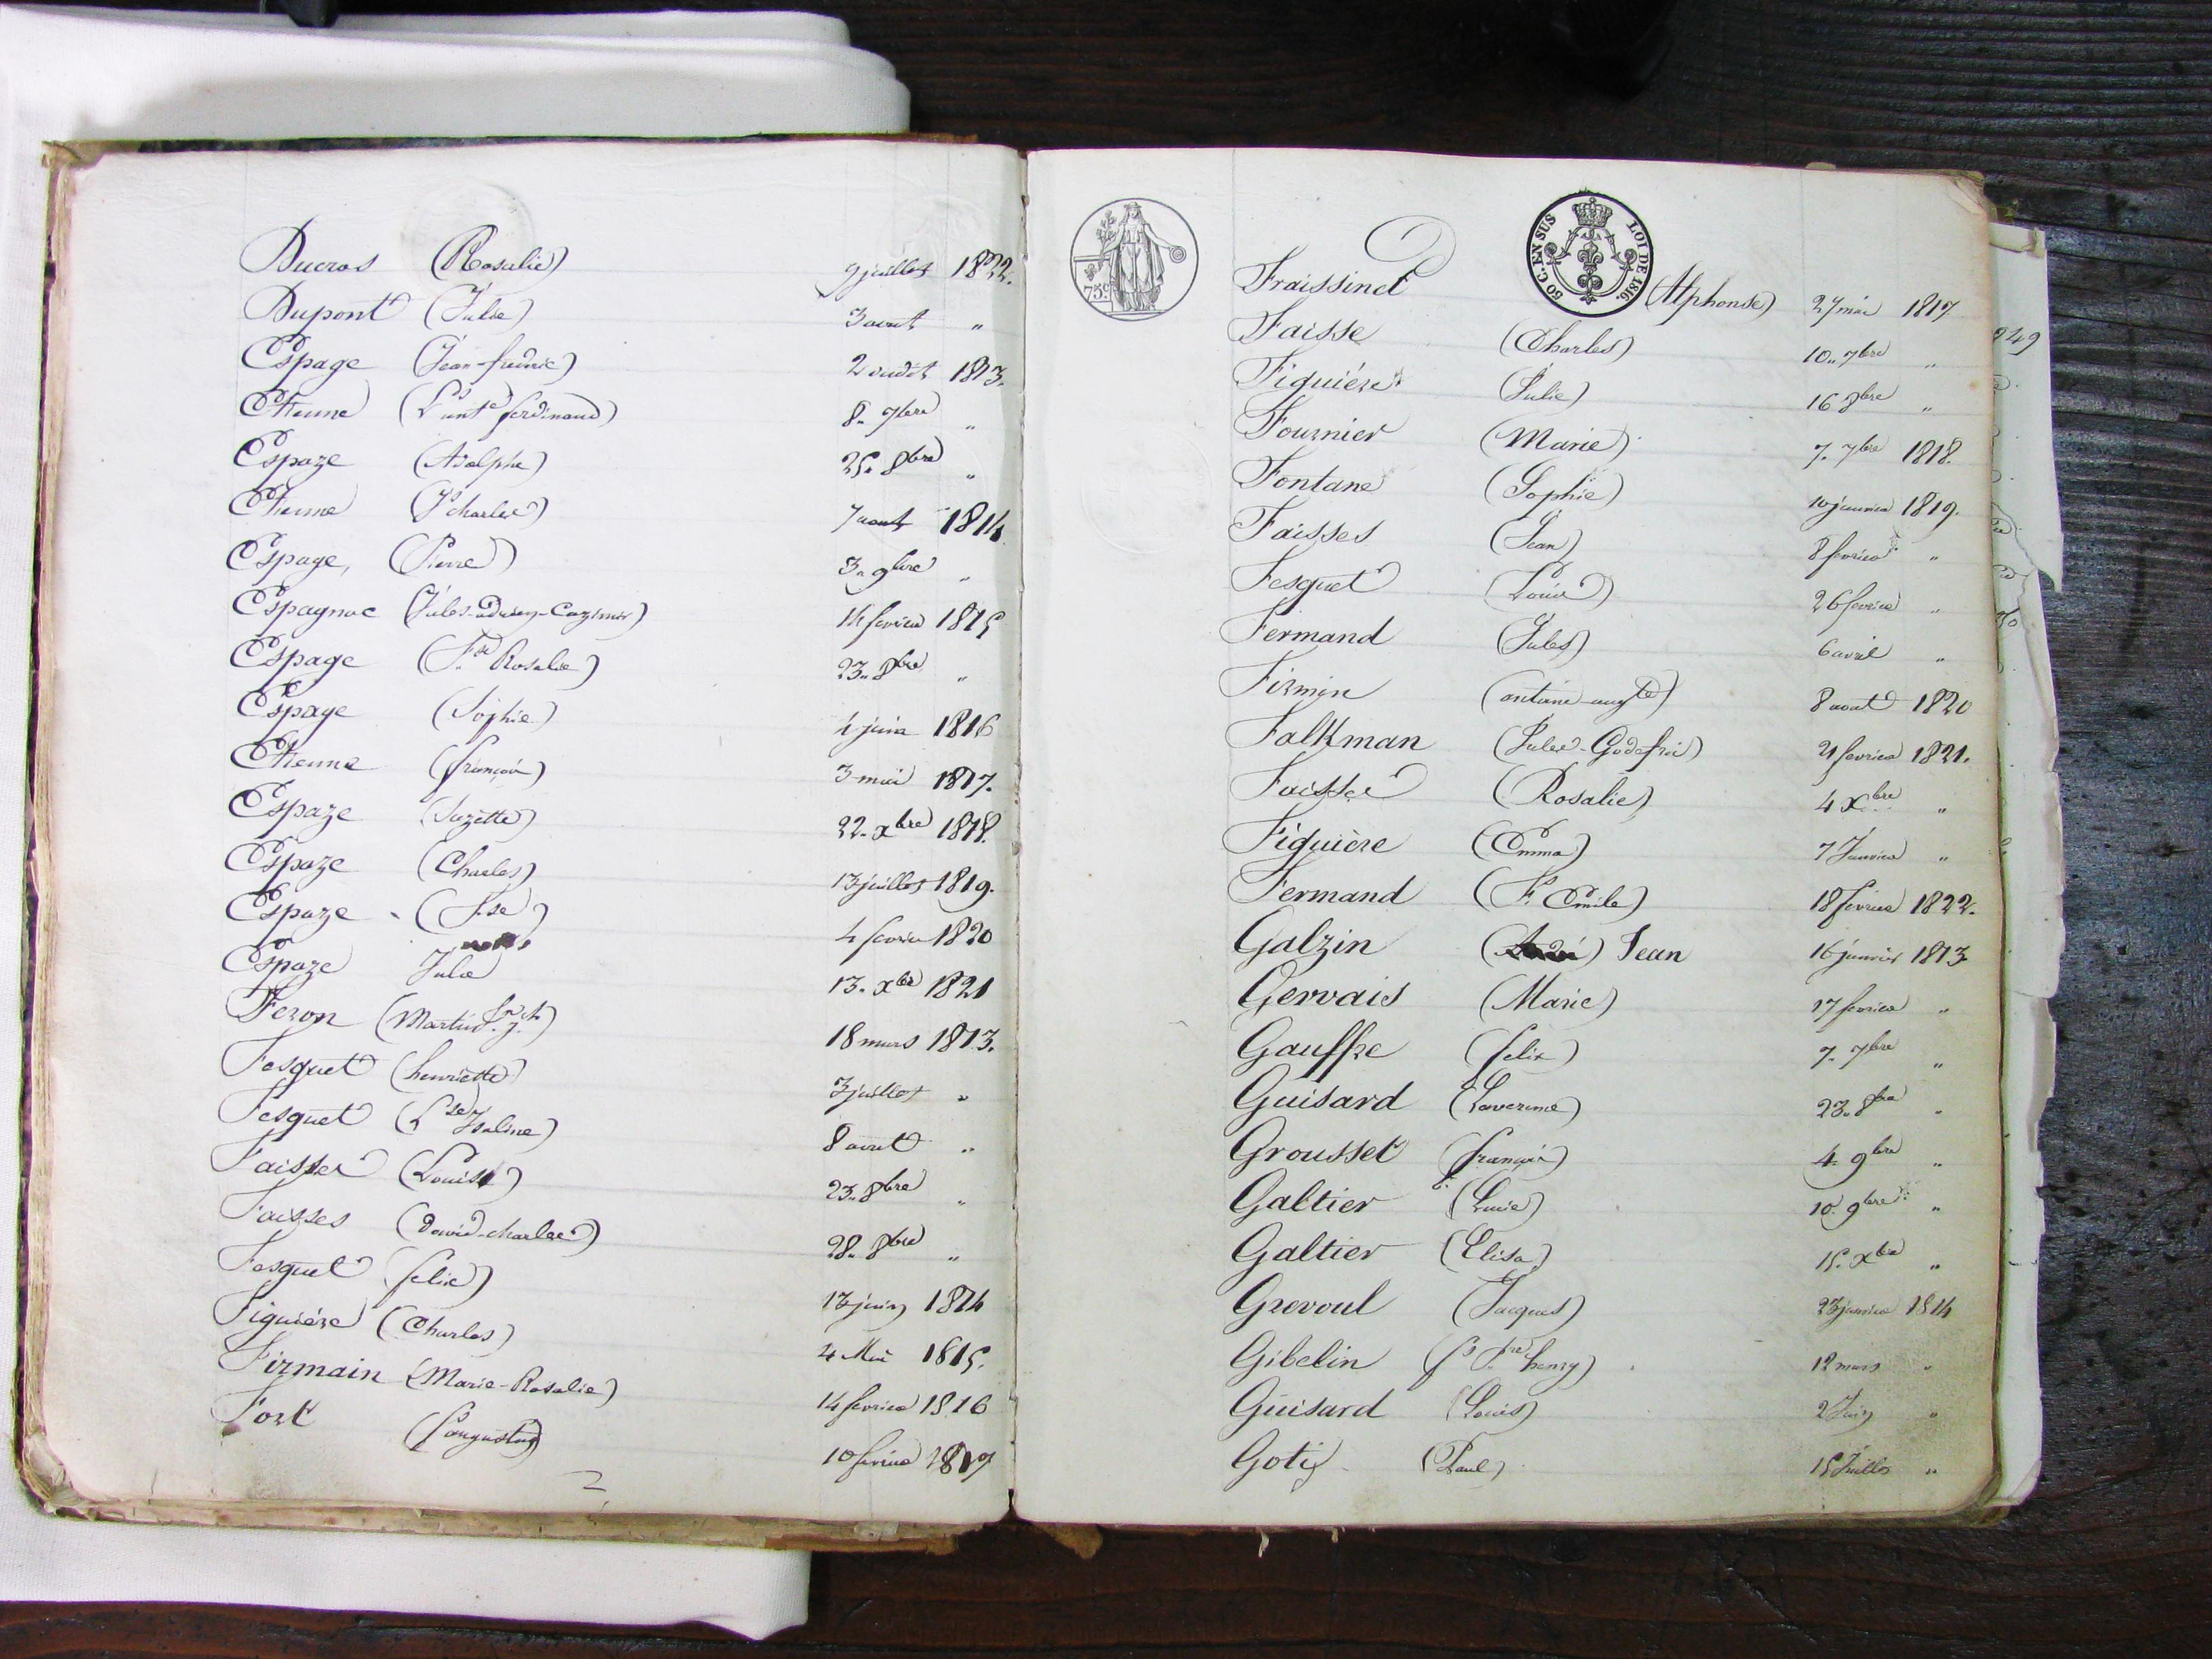 Ducros (Rosalie) 9 juillet 1822.
Dupont (Julie) 3 aout "
Espage (Jean-frederic) 2 aout 1813.
Etienne ( ferdinand) 8. 7bre "
Espaze (Adolphe) 25. 8bre "
Etienne (Charles) 7 aout 1814
Espage, (Pierre) 3. 9bre "
Espagnac (Jules-adrien-Cazimir) 14 fevrier 1815
Espage (Fse Rosalie) 23. 8bre "
Espage (Sophie) 4 juin 1816
Etienne (françois) 3 mai 1817.
Espaze (Suzette) 22. xbre 1818.
Espaze (Charles) 13 juillet 1819.
Espaze (Fse) 4 fevrier 1820
Espaze Julie 13. xbre 1821
Feron (Martin 18 mars 1813.
Fesquet (henriette) 3 juillet "
Fesquet (Lse Ysaline) 8 aout "
Faisses (Louise) 23. 8bre "
Faisses (David-charles) 28. 8bre "
Fesquet (felix) 13 juin 1814
Figuiére (Charles) 4 Mai 1815.
Firmain (Marie-Rosalie) 14 fevrier 1816
Fort 10 fevrier 1817
2
75c
50 C. EN SUS LOI DE 1816.
Fraissinet (Alphonse) 27 mai 1817
Faisse (Charles) 10. 7bre "
Figuiére (Julie) 16 8bre "
Fournier (Marie) 7. 7bre 1818.
Fontane (Sophie) 10 janvier 1819.
Faisses (Jean) 8 fevrier "
Fesquet (Louis) 26 fevrier "
Fermand (Jules) 6 avril "
Firmin (antoine-augte) 8 aout 1820
Falkman (Jules-Godefroi) 21 fevrier 1821.
Faisses (Rosalie) 4 Xbre "
Figuière (Emma) 7 Janvier "
Fermand (Fs Emile) 18 fevrier 1822.
Galzin (André) Jean 16 janvier 1813
Gervais (Marie) 17 fevrier "
Gauffre (felix) 7. 7bre "
Guisard (Laverune) 23. 8bre "
Grousset (françois) 4. 9bre "
Galtier (Lucie) 10. 9bre "
Galtier (Elisa) 15. Xbre "
Grevoul (Jacques) 23 janvier 1814
Gibelin ( henry) 12 mars "
Guisard (Louis) 2 Juin "
Goty (Paul) 15 Juillet "
249